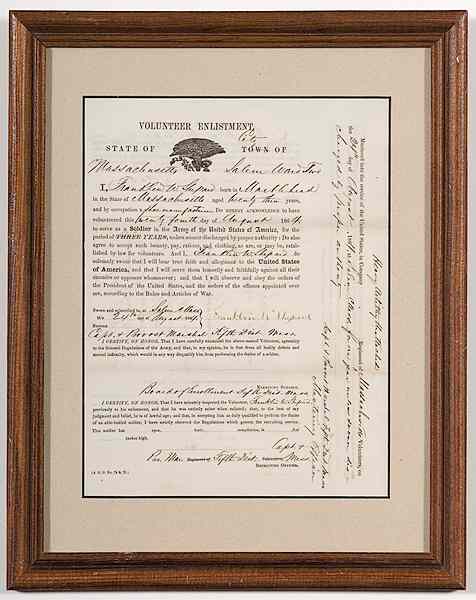 VOLUNTEER ENLISTMENT.
City
STATE OF TOWN OF
Massachusetts Salem Ward Two
I, Franklin W. born in Marblehead
in the State of Massachusetts aged twenty three years,
and by occupation a Do HEREBY ACKNOWLEDGE to have
volunteered this twenty fourth day of August 186
to serve as a Soldier in the Army of the United States of America, for the
period of THREE YEARS, unless sooner discharged by proper authority: Do also
agree to accept such bounty, pay, rations, and clothing, as are, or may be, estab-
lished by law for volunteers. And I, Franklin W. do
solemnly swear that I will bear true faith and allegiance to the United States
of America, and that I will serve them honestly and faithfully against all their
enemies or opposers whomsoever; and that I will observe and obey the orders of
the President of the United States, and the orders of the officers appointed over
me, according to the Rules and Articles of War.
Sworn and subscribed to, at Salem Mass
this 24th day of August 186
BEFORE
Capt & Provost Marshal Fifth Dist. Mass
I CERTIFY, ON HONOR, That I have carefully examined the above-named Volunteer, agreeably
to the General Regulations of the Army, and that, in my opinion, he is free from all bodily defects and
mental infirmity, which would in any way disqualify him from performing the duties of a soldier.
EXAMINING SURGEON.
Board of Enrollment 5th Dist. Mass
I CERTIFY, ON HONOR, That I have minutely inspected the Volunteer, Franklin W.
previously to his enlistment, and that he was entirely sober when enlisted; that, to the best of my
judgment and belief, he is of lawful age; and that, in accepting him as duly qualified to perform the duties
of an able-bodied soldier, I have strictly observed the Regulations which govern the recruiting service.
This soldier has eyes, hair, complexion, is feet
inches high.
Capt &
Pro. Mar. Regiment of Fifth Dist. Volunteers Mass
RECRUITING OFFICER.
(A. G. O. No. 74 & 76.)
Mustered into the service of the United States, in Company
Regiment of Massachusetts Volunteers, on
the 24th day of August
Capt & Provost Marshal Fifth Dist Mass
Mustering Officer